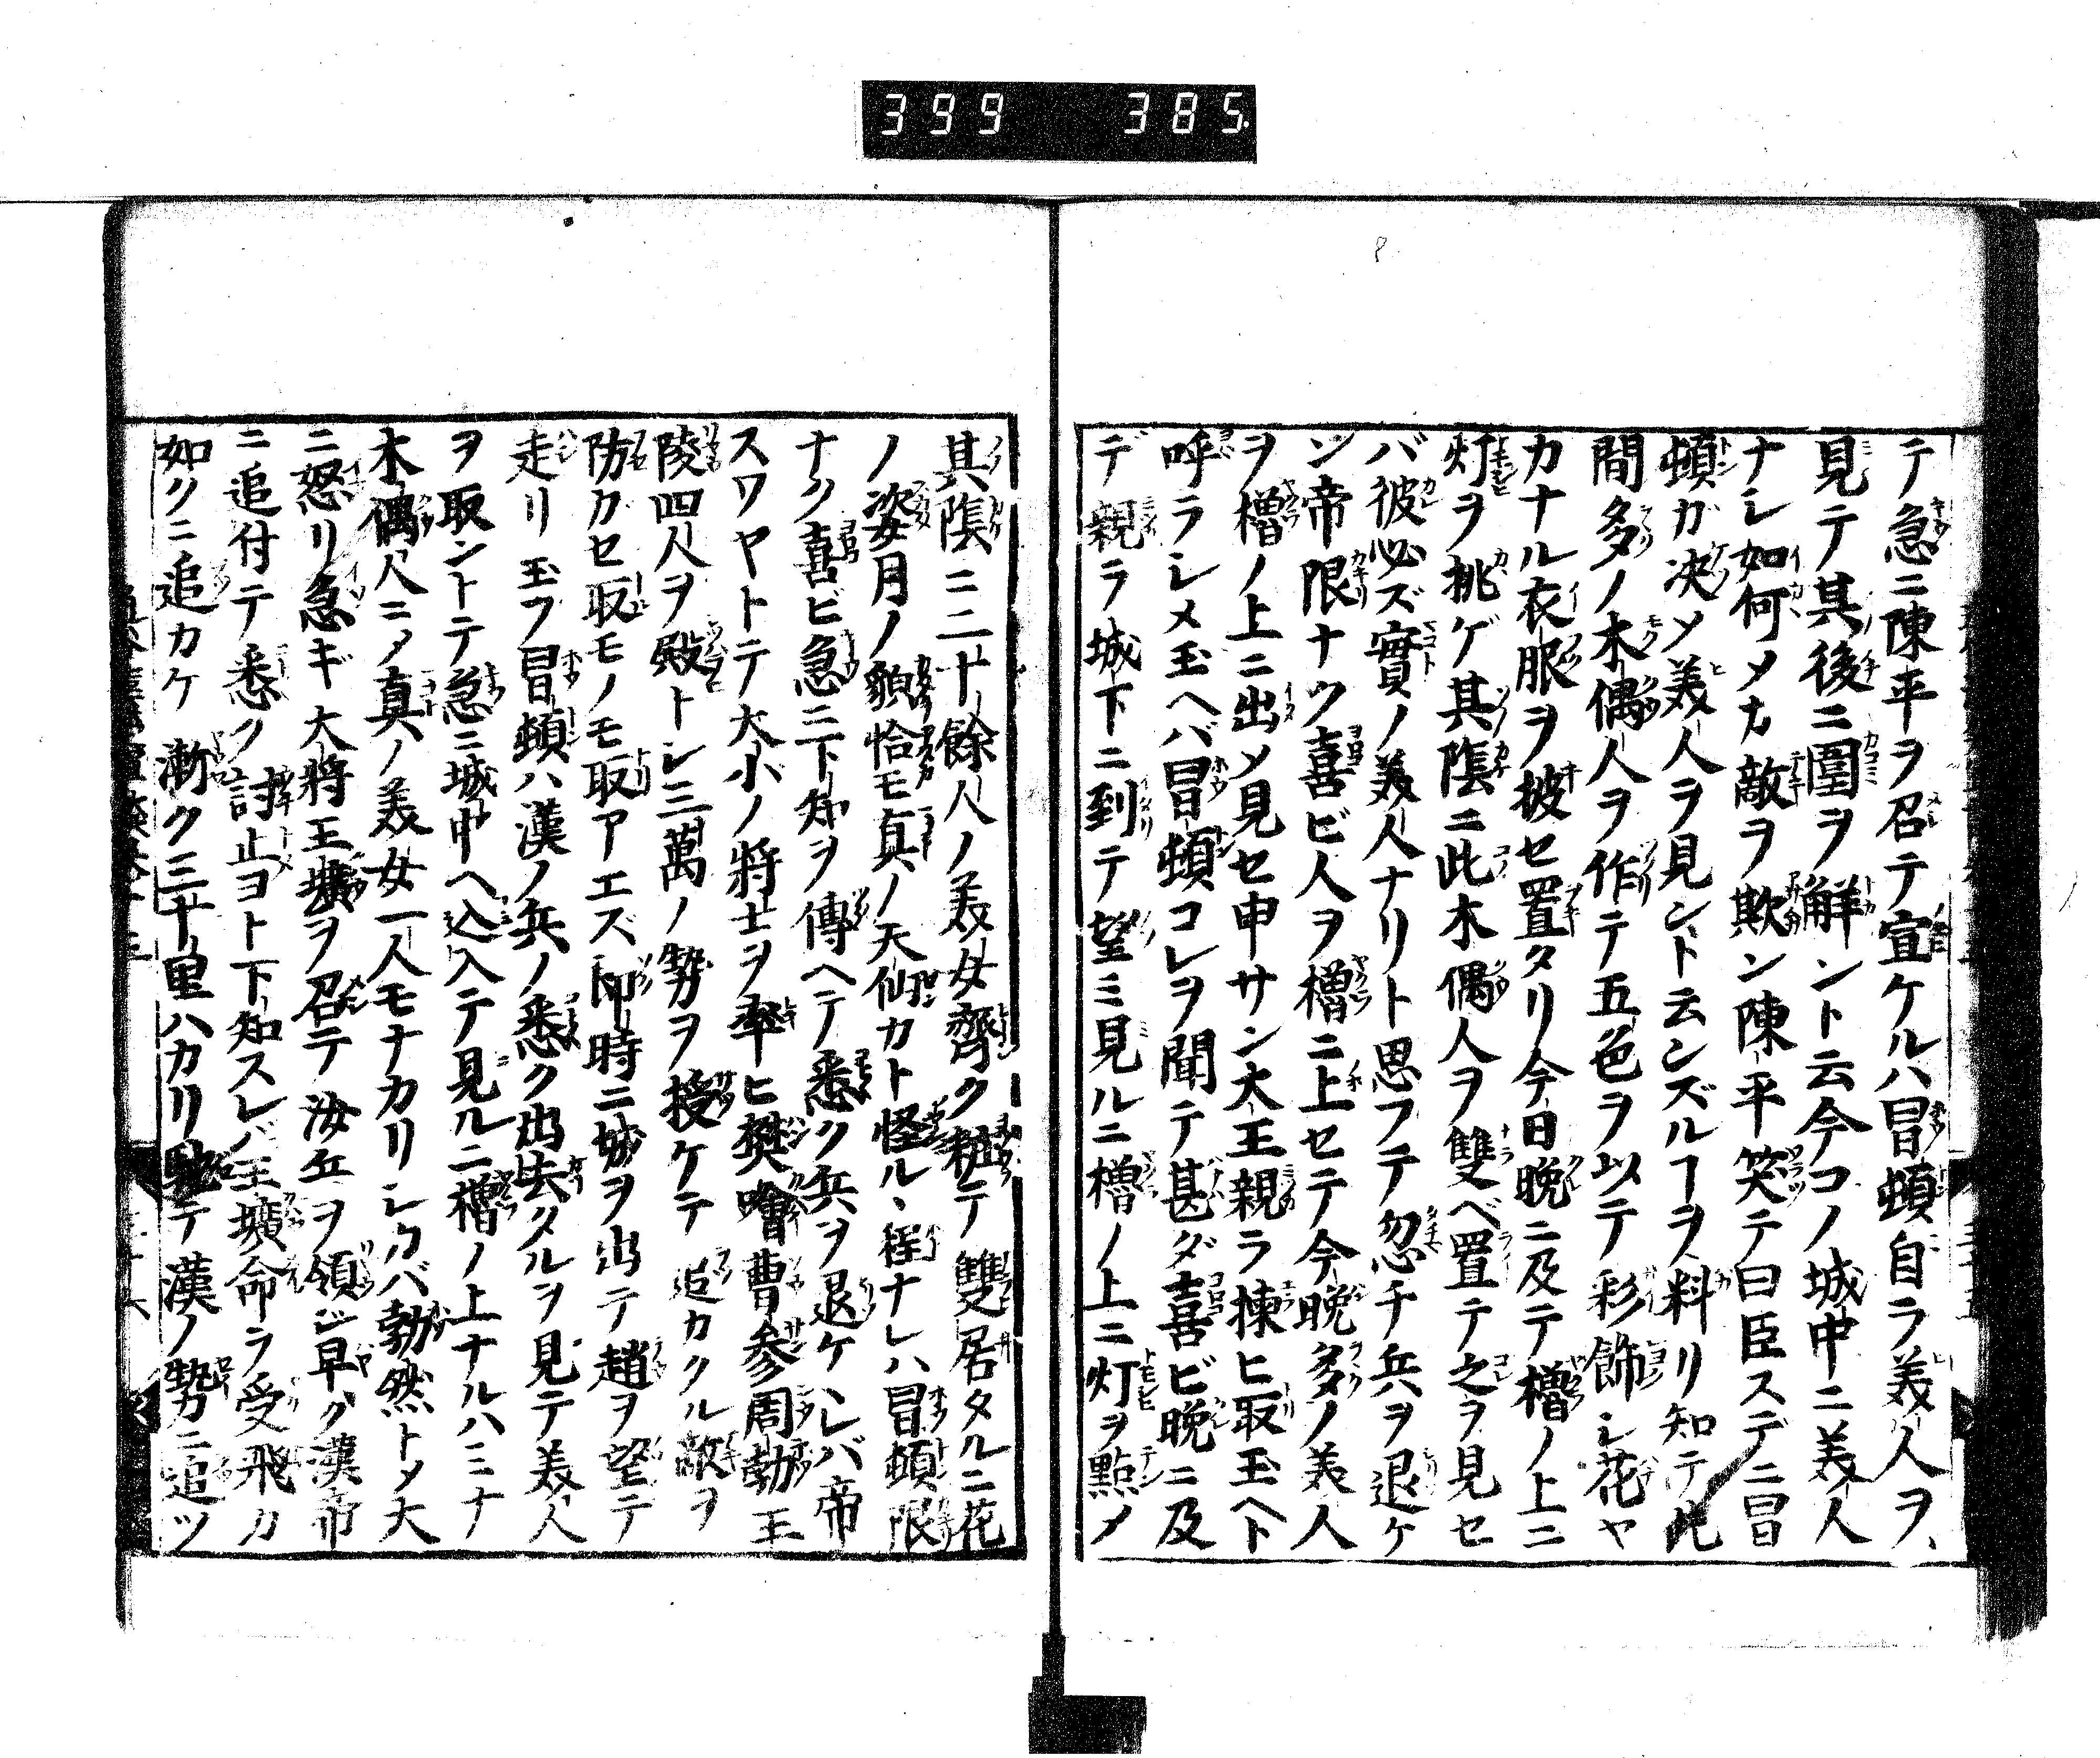 399 385
テ急ニ陳平ヲ召テ宣ケルハ冒頓自ラ美人ヲ
見テ其後ニ圍ヲ解ント云今コノ城中ニ美人
ナシ如何メカ敵ヲ欺ン陳平笑テ曰臣スデニ冒
頓ガ决メ美人ヲ見ント云ンズルヿヲ料リ知テ此
間多ノ木偶人ヲ作テ五色ヲ以テ彩飾シ花ヤ
カナル衣服ヲ披セ置タリ今日晩ニ及テ櫓ノ上ニ
灯ヲ挑ゲ其陰ニ此木偶人ヲ雙ベ置テ之ヲ見セ
バ彼必ズ實ノ美人ナリト思フテ忽チ兵ヲ退ケ
ン帝限ナク喜ビ人ヲ櫓ニ上セテ今晩多ノ美人
ヲ櫓ノ上ニ出メ見セ申サン大王親ラ揀ヒ取玉ヘト
呼ラシメ玉ヘバ冒頓コレヲ聞テ甚ダ喜ビ晩ニ及
デ親ラ城下ニ到テ望ミ見ルニ櫓ノ上ニ灯ヲ點メ
其陰ニ二十餘人ノ美女齊ク粧テ雙居タルニ花
ノ姿月ノ貌恰モ真ノ天仙カト怪ルヽ程ナレハ冒頓限
ナク喜ビ急ニ下知ヲ傳ヘテ悉ク兵ヲ退ケヽレバ帝
スワヤトテ大小ノ將士ヲ率ヒ樊噲曹参周勃王
陵四人ヲ殿トシ三萬ノ勢ヲ授ケテ追カクル敵ヲ
防カセ取モノモ取アエズ即時ニ城ヲ出テ趙ヲ望テ
走リ玉フ冒頓ハ漢ノ兵ノ悉ク出去タルヲ見テ美人
ヲ取ントテ急ニ城中ヘ込入テ見ルニ櫓ノ上ナルハミナ
木偶人ニメ真ノ美女一人モナカリシカバ勃然トメ大
ニ怒リ急ギ大將王壙ヲ召テ汝兵ヲ領シ早ク漢帝
ニ追付テ悉ク討止ヨト下知スレバ王壙命ヲ受飛カ
如クニ追カケ漸ク三十里ハカリ馳テ漢ノ勢ニ追ツ